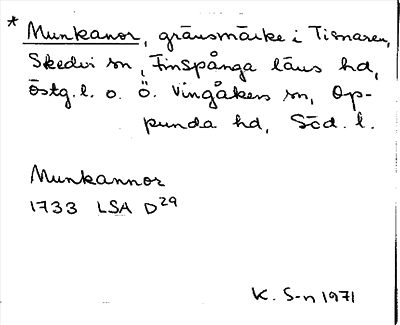 * Munkanor, gränsmärke i Tisnaren,
Skedvi sn, Finspånga läns hd,
Östg. l. o. Ö. Vingåkers sn, Op-
punda hd, Söd. l.
Munkannor
1733 LSA D29
K. S-n 1971